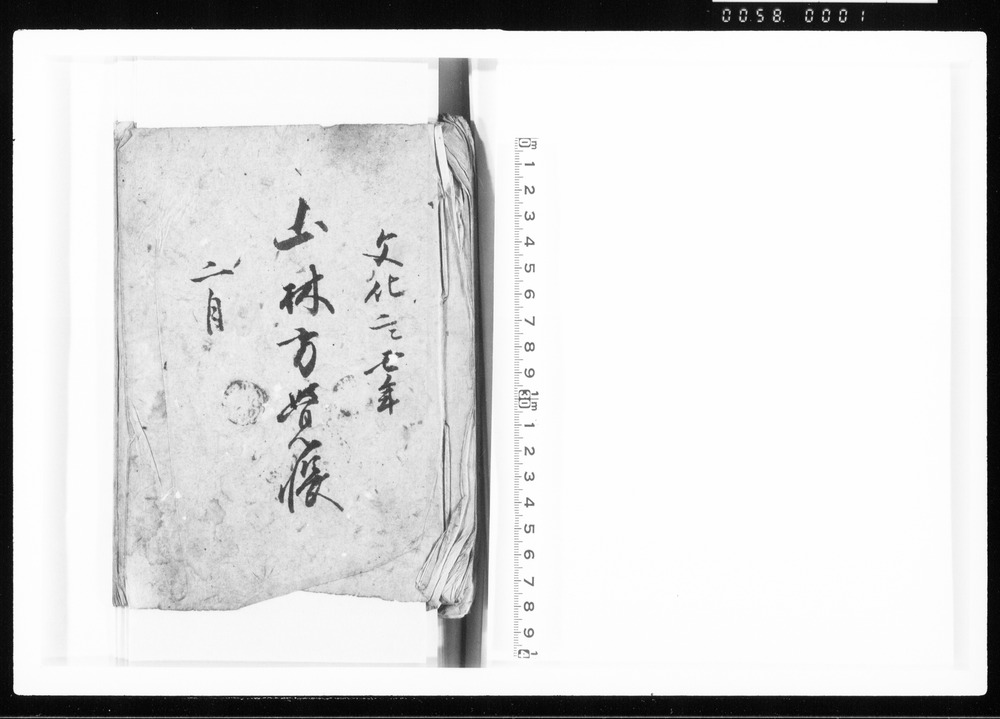 0058 0001
文化二丑年
山林方覚帳
二月
1 2 3 4 5 6 7 8 9 10 1 2 3 4 5 6 7 8 9